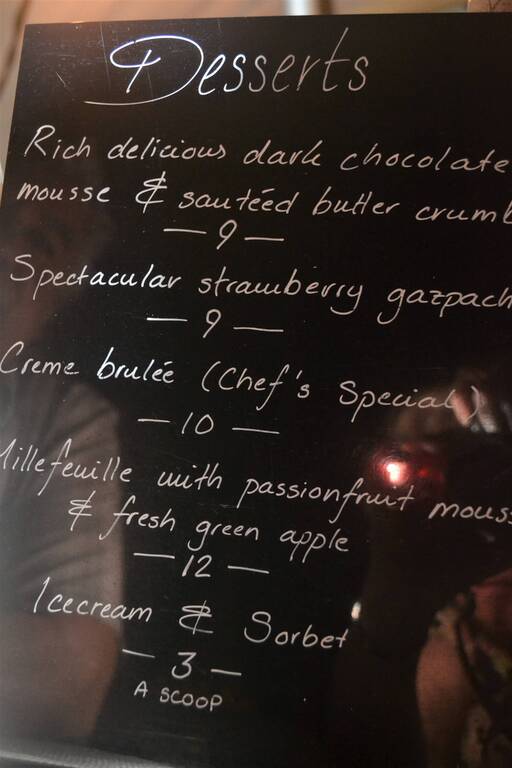 Desserts
Rich delicious dark chocolate
mousse & sautéed butter crumb
— 9 —
Spectacular strawberry gazpach
— 9 —
Creme brulée (Chef's Special)
— 10 —
Millefeuille with passionfruit mouss
& fresh green apple
— 12 —
Icecream & Sorbet
— 3 —
A SCOOP